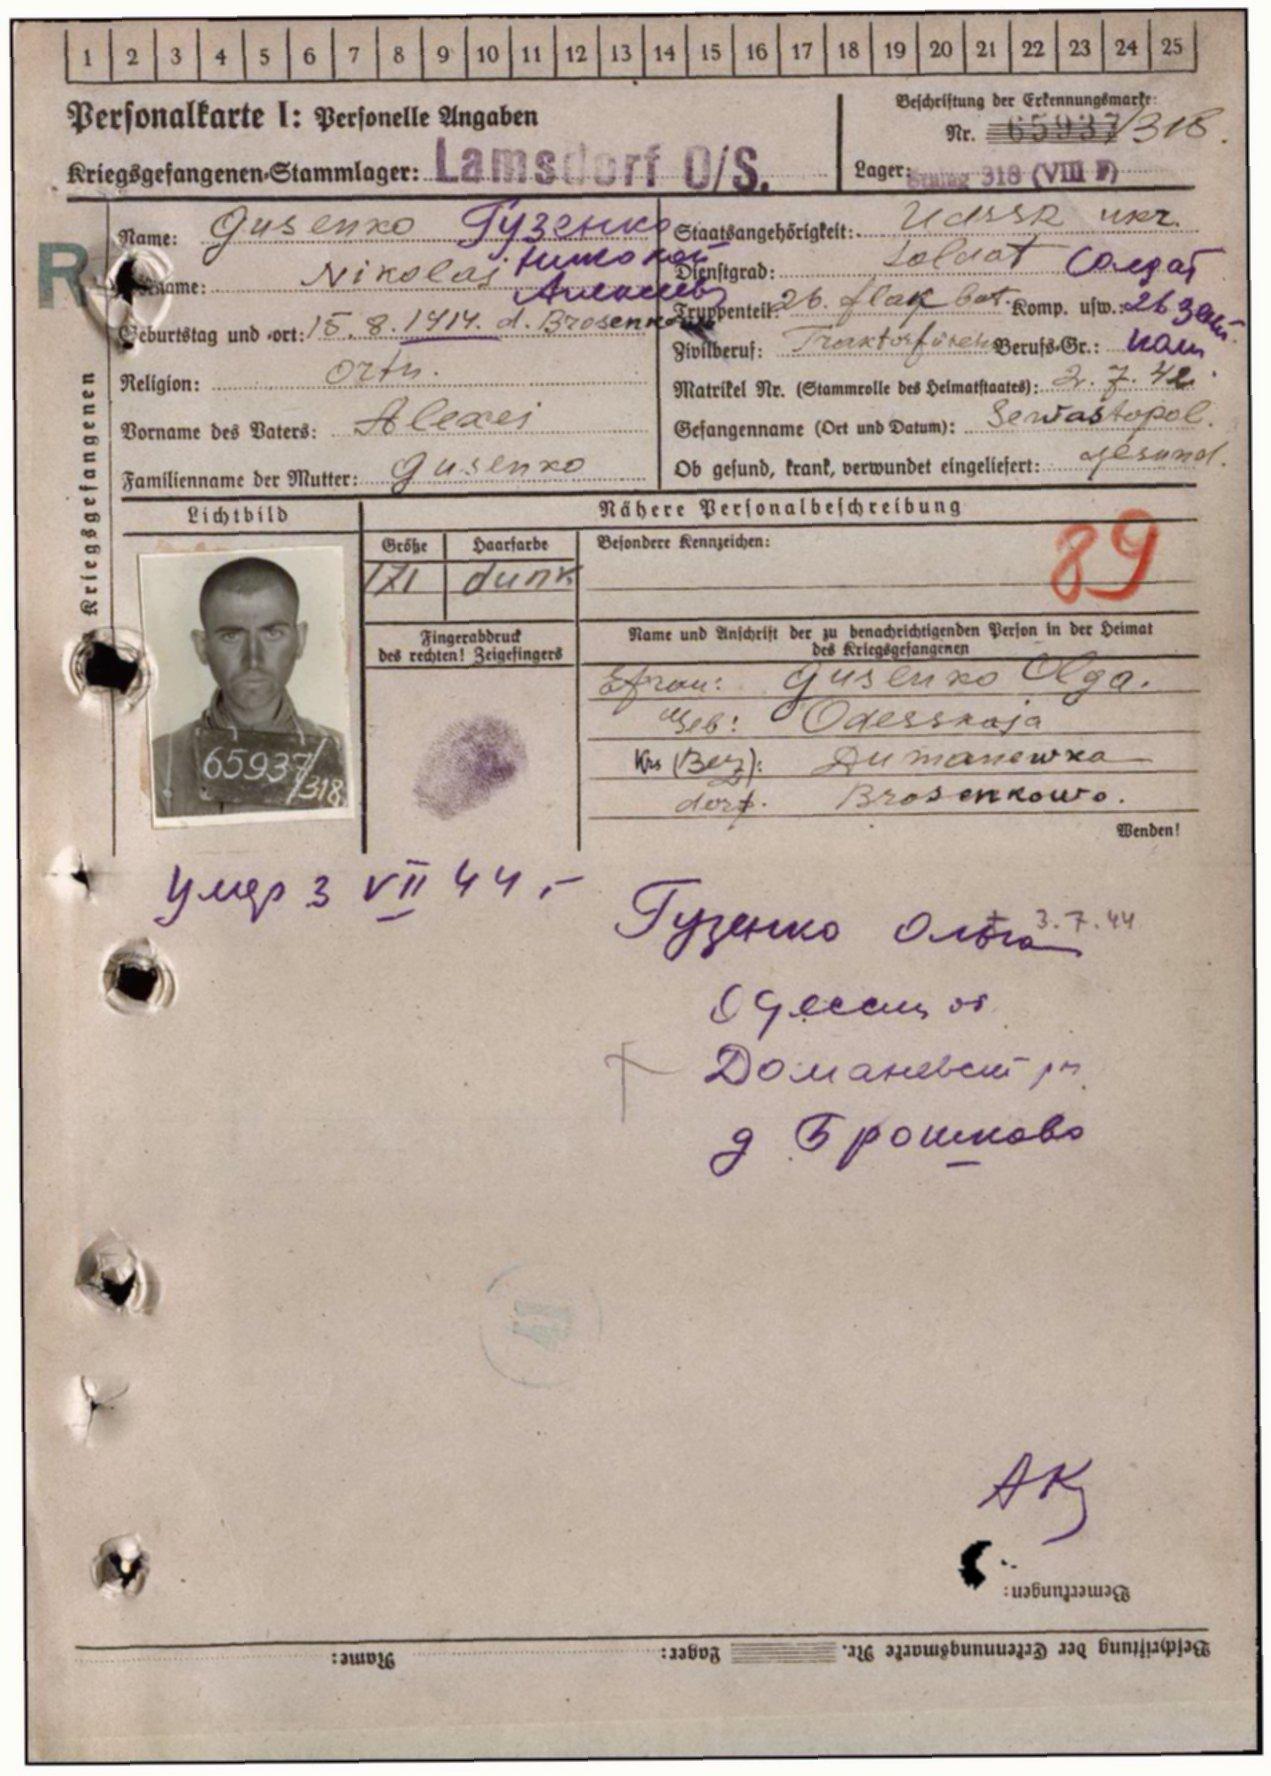 1 2 3 4 5 6 7 8 9 10 11 12 13 14 15 16 17 18 19 20 21 22 23 24 25
Personalkarte I: Personelle Angaben
Kriegsgefangenen-Stammlager: Lamsdorf O/S.
Beschriftung der Erkennungsmarke:
Nr. 65937/318.
Lager: Stalag 318 (VIII F)
R
Kriegsgefangenen
Name: Gusenko Гузенко
Nikolaj
Geburtstag und -ort: 15.8.1914. d. Brosenkowo
Religion: orth.
Vorname des Vaters: Alexei
Familienname der Mutter: Gusenko
Staatsangehörigkeit: UdSSR ukr.
Dienstgrad: Soldat Солдат
Truppenteil: 26. flak bat. Komp. usw.: 26 зен
Zivilberuf: Berufs-Gr.:
Matrikel Nr. (Stammrolle des Heimatstaates): 2.7.42.
Gefangenname (Ort und Datum): Sewastopol.
Ob gesund, krank, verwundet eingeliefert: gesund.
Lichtbild
Nähere Personalbeschreibung
Größe Haarfarbe Besondere Kennzeichen:
171 dunk
89
65937/318
Fingerabdruck
des rechten! Zeigefingers
Name und Anschrift der zu benachrichtigenden Person in der Heimat
des Kriegsgefangenen
Efrau: Gusenko Olga.
Geb: Odesskaja
Krs (Bez): Dumanewka
dorf. Brosenkowo.
Wenden!
Умер 3 VII 44.-
Гузенко Ольга
+ 3.7.44
Доманевск рн
д Брошково
АК
Bemerkungen:
Beschriftung der Erkennungsmarke Nr. Lager: Name: